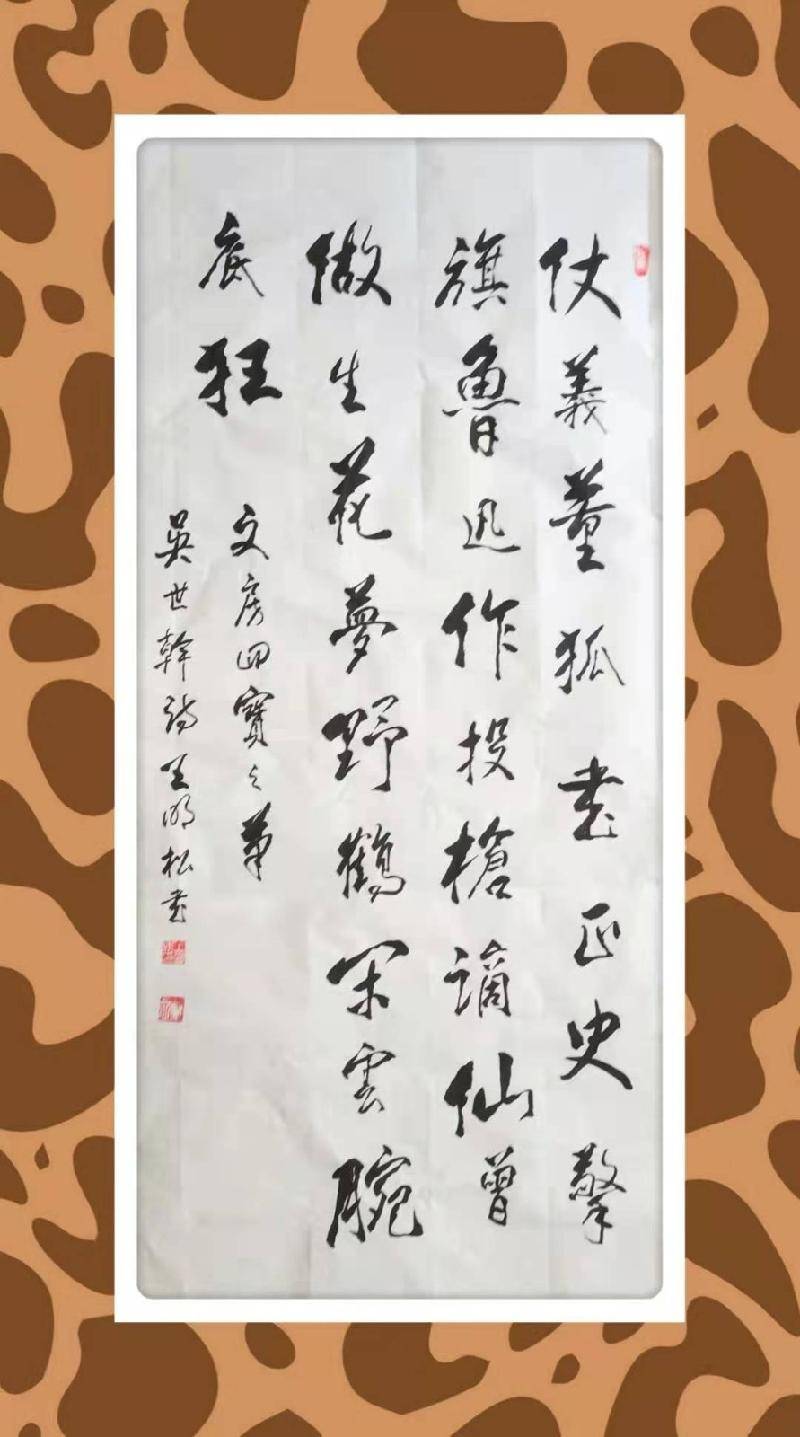 仗義董狐書正史擎
旗魯迅作投槍謫仙曾
做生花夢野鶴閑雲腕
底狂
文房四寶之筆
吳世幹詩王明松書